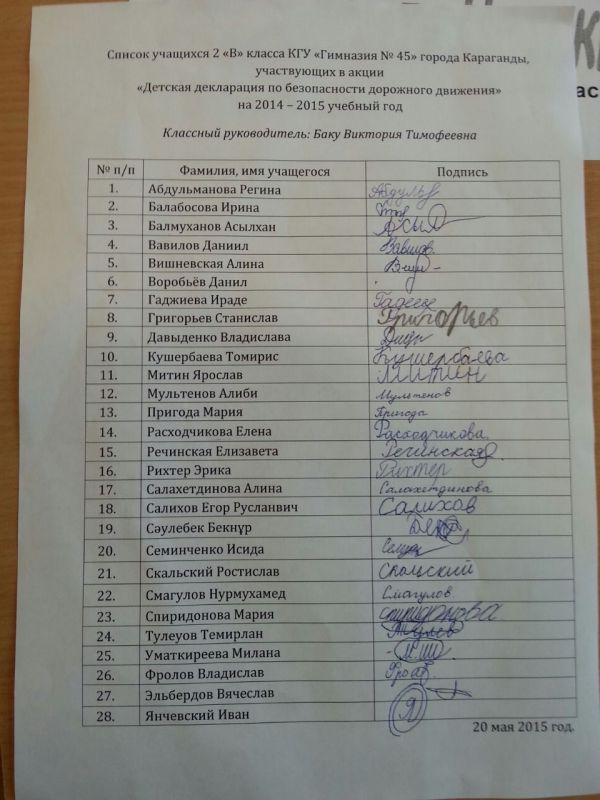 Список учащихся 2 «В» класса КГУ «Гимназия № 45» города Караганды,
участвующих в акции
«Детская декларация по безопасности дорожного движения»
на 2014 – 2015 учебный год
Классный руководитель: Баку Виктория Тимофеевна
№ п/п Фамилия, имя учащегося Подпись
1. Абдульманова Регина
2. Балабосова Ирина
3. Балмуханов Асылхан Асыл
4. Вавилов Даниил Вавилов
5. Вишневская Алина
6. Воробьёв Данил
7. Гаджиева Ираде
8. Григорьев Станислав Григорьев
9. Давыденко Владислава
10. Кушербаева Томирис Кушербаева
11. Митин Ярослав Митин
12. Мультенов Алиби Мультенов
13. Пригода Мария Пригода
14. Расходчикова Елена Расходчикова
15. Речинская Елизавета Речинская
16. Рихтер Эрика Рихтер
17. Салахетдинова Алина Салахетдинова
18. Салихов Егор Русланвич Салихов
19. Сәулебек Бекнұр
20. Семинченко Исида
21. Скальский Ростислав Скальский
22. Смагулов Нурмухамед Смагулов
23. Спиридонова Мария Спиридонова
24. Тулеуов Темирлан
25. Уматкиреева Милана
26. Фролов Владислав
27. Эльбердов Вячеслав
28. Янчевский Иван Я
20 мая 2015 год.